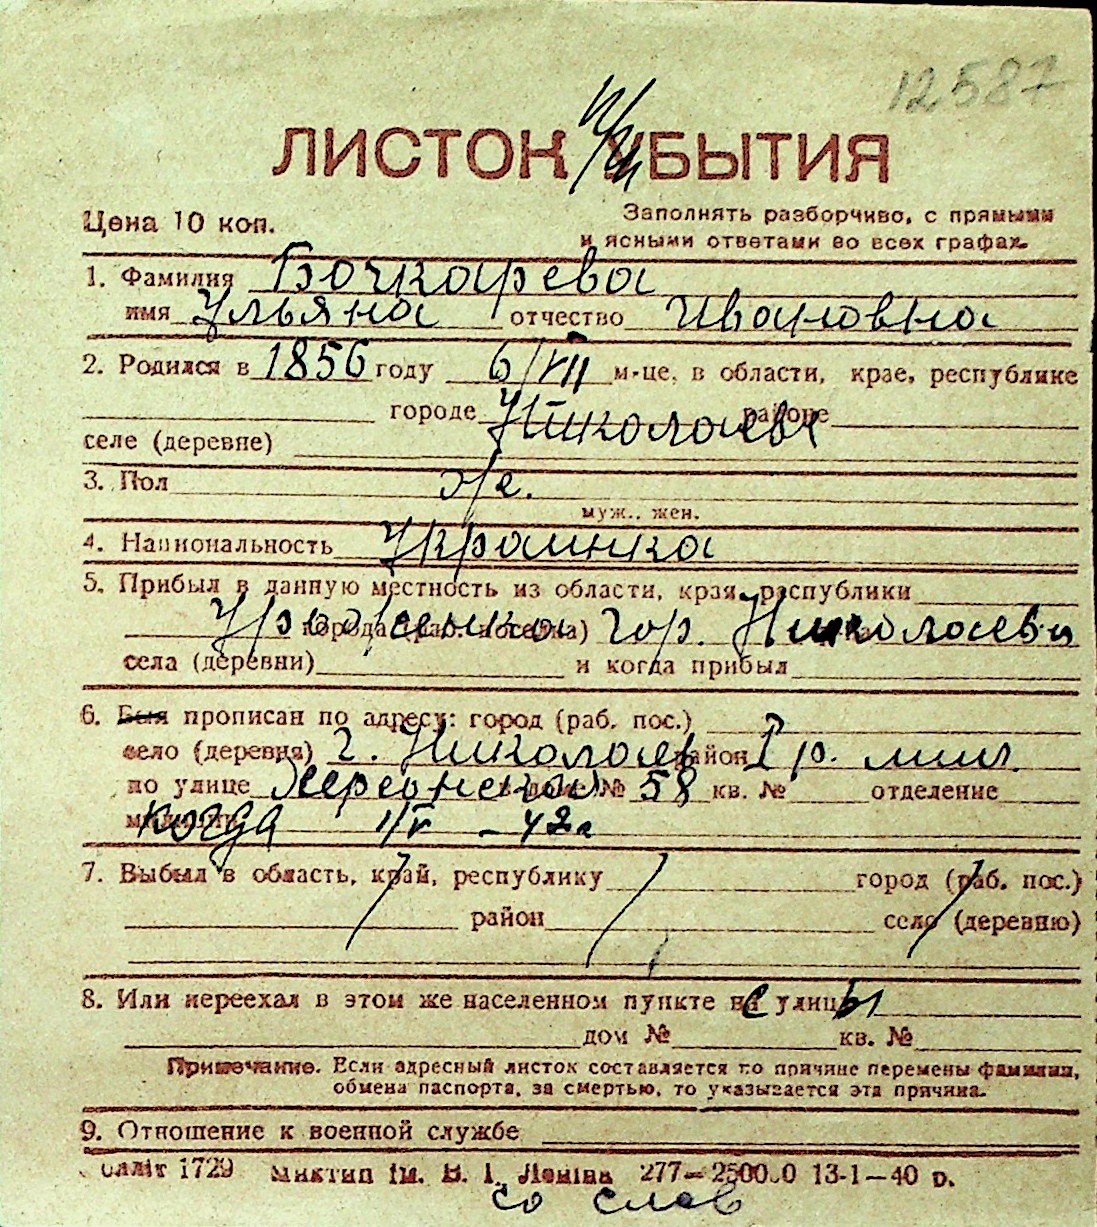 12587
ЛИСТОК УБЫТИЯ
Цена 10 коп.
Заполнять разборчиво, с прямыми
и ясными ответами во всех графах.
1. Фамилия Бочкарева
имя Ульяна отчество Ивановна
2. Родился в 1856 году 6/VII м-це, в области, крае, республике
городе Николаеве районе
селе (деревне)
3. Пол же.
муж., жен.
4. Национальность Украинка
5. Прибыл в данную местность из области, края, республики
Уроженка города (раб. поселка) гор. Николаева
села (деревни) и когда прибыл
6. Был прописан по адресу: город (раб. пос.)
село (деревня) г. Николаев район Гр. мил.
по улице Херсонская в доме № 58 кв. № отделение
милиции когда 1/V -42г
7. Выбыл в область, край, республику город (раб. пос.)
район село (деревню)
8. Или переехал в этом же населенном пункте с улицы
дом № кв. №
Примечание. Если адресный листок составляется по причине перемены фамилии,
обмена паспорта, за смертью, то указывается эта причина.
9. Отношение к военной службе
облліт 1729 Миктип ім. В. І. Леніна 277—25000 13-1—40 р.
со слов